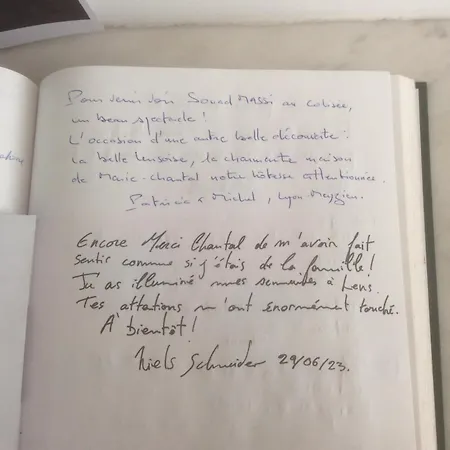 Pour venir voir Souad MASSI au colisée,
un beau spectacle !
L'occasion d'une autre belle découverte :
la belle lensoise, la charmante maison
de Marie-chantal notre hôtesse attentionnée.
Patricia & Michel, Lyon-Meyzieu.
Encore Merci Chantal de m'avoir fait
sentir comme si j'étais de la famille !
Tu as illuminé mes semaines à Lens.
Tes attentions m'ont énormément touché.
À bientôt !
Niels Schneider 29/06/23.